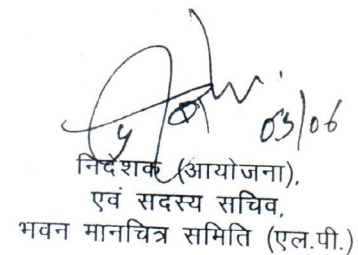 03/06
निदेशक (आयोजना),
एवं सदस्य सचिव,
भवन मानचित्र समिति (एल.पी.)